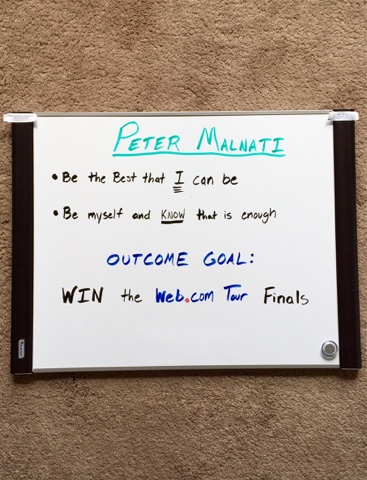 PETER MALNATI
• Be the Best that I can be
• Be myself and KNOW that is enough
OUTCOME GOAL:
WIN the Web.com Tour Finals